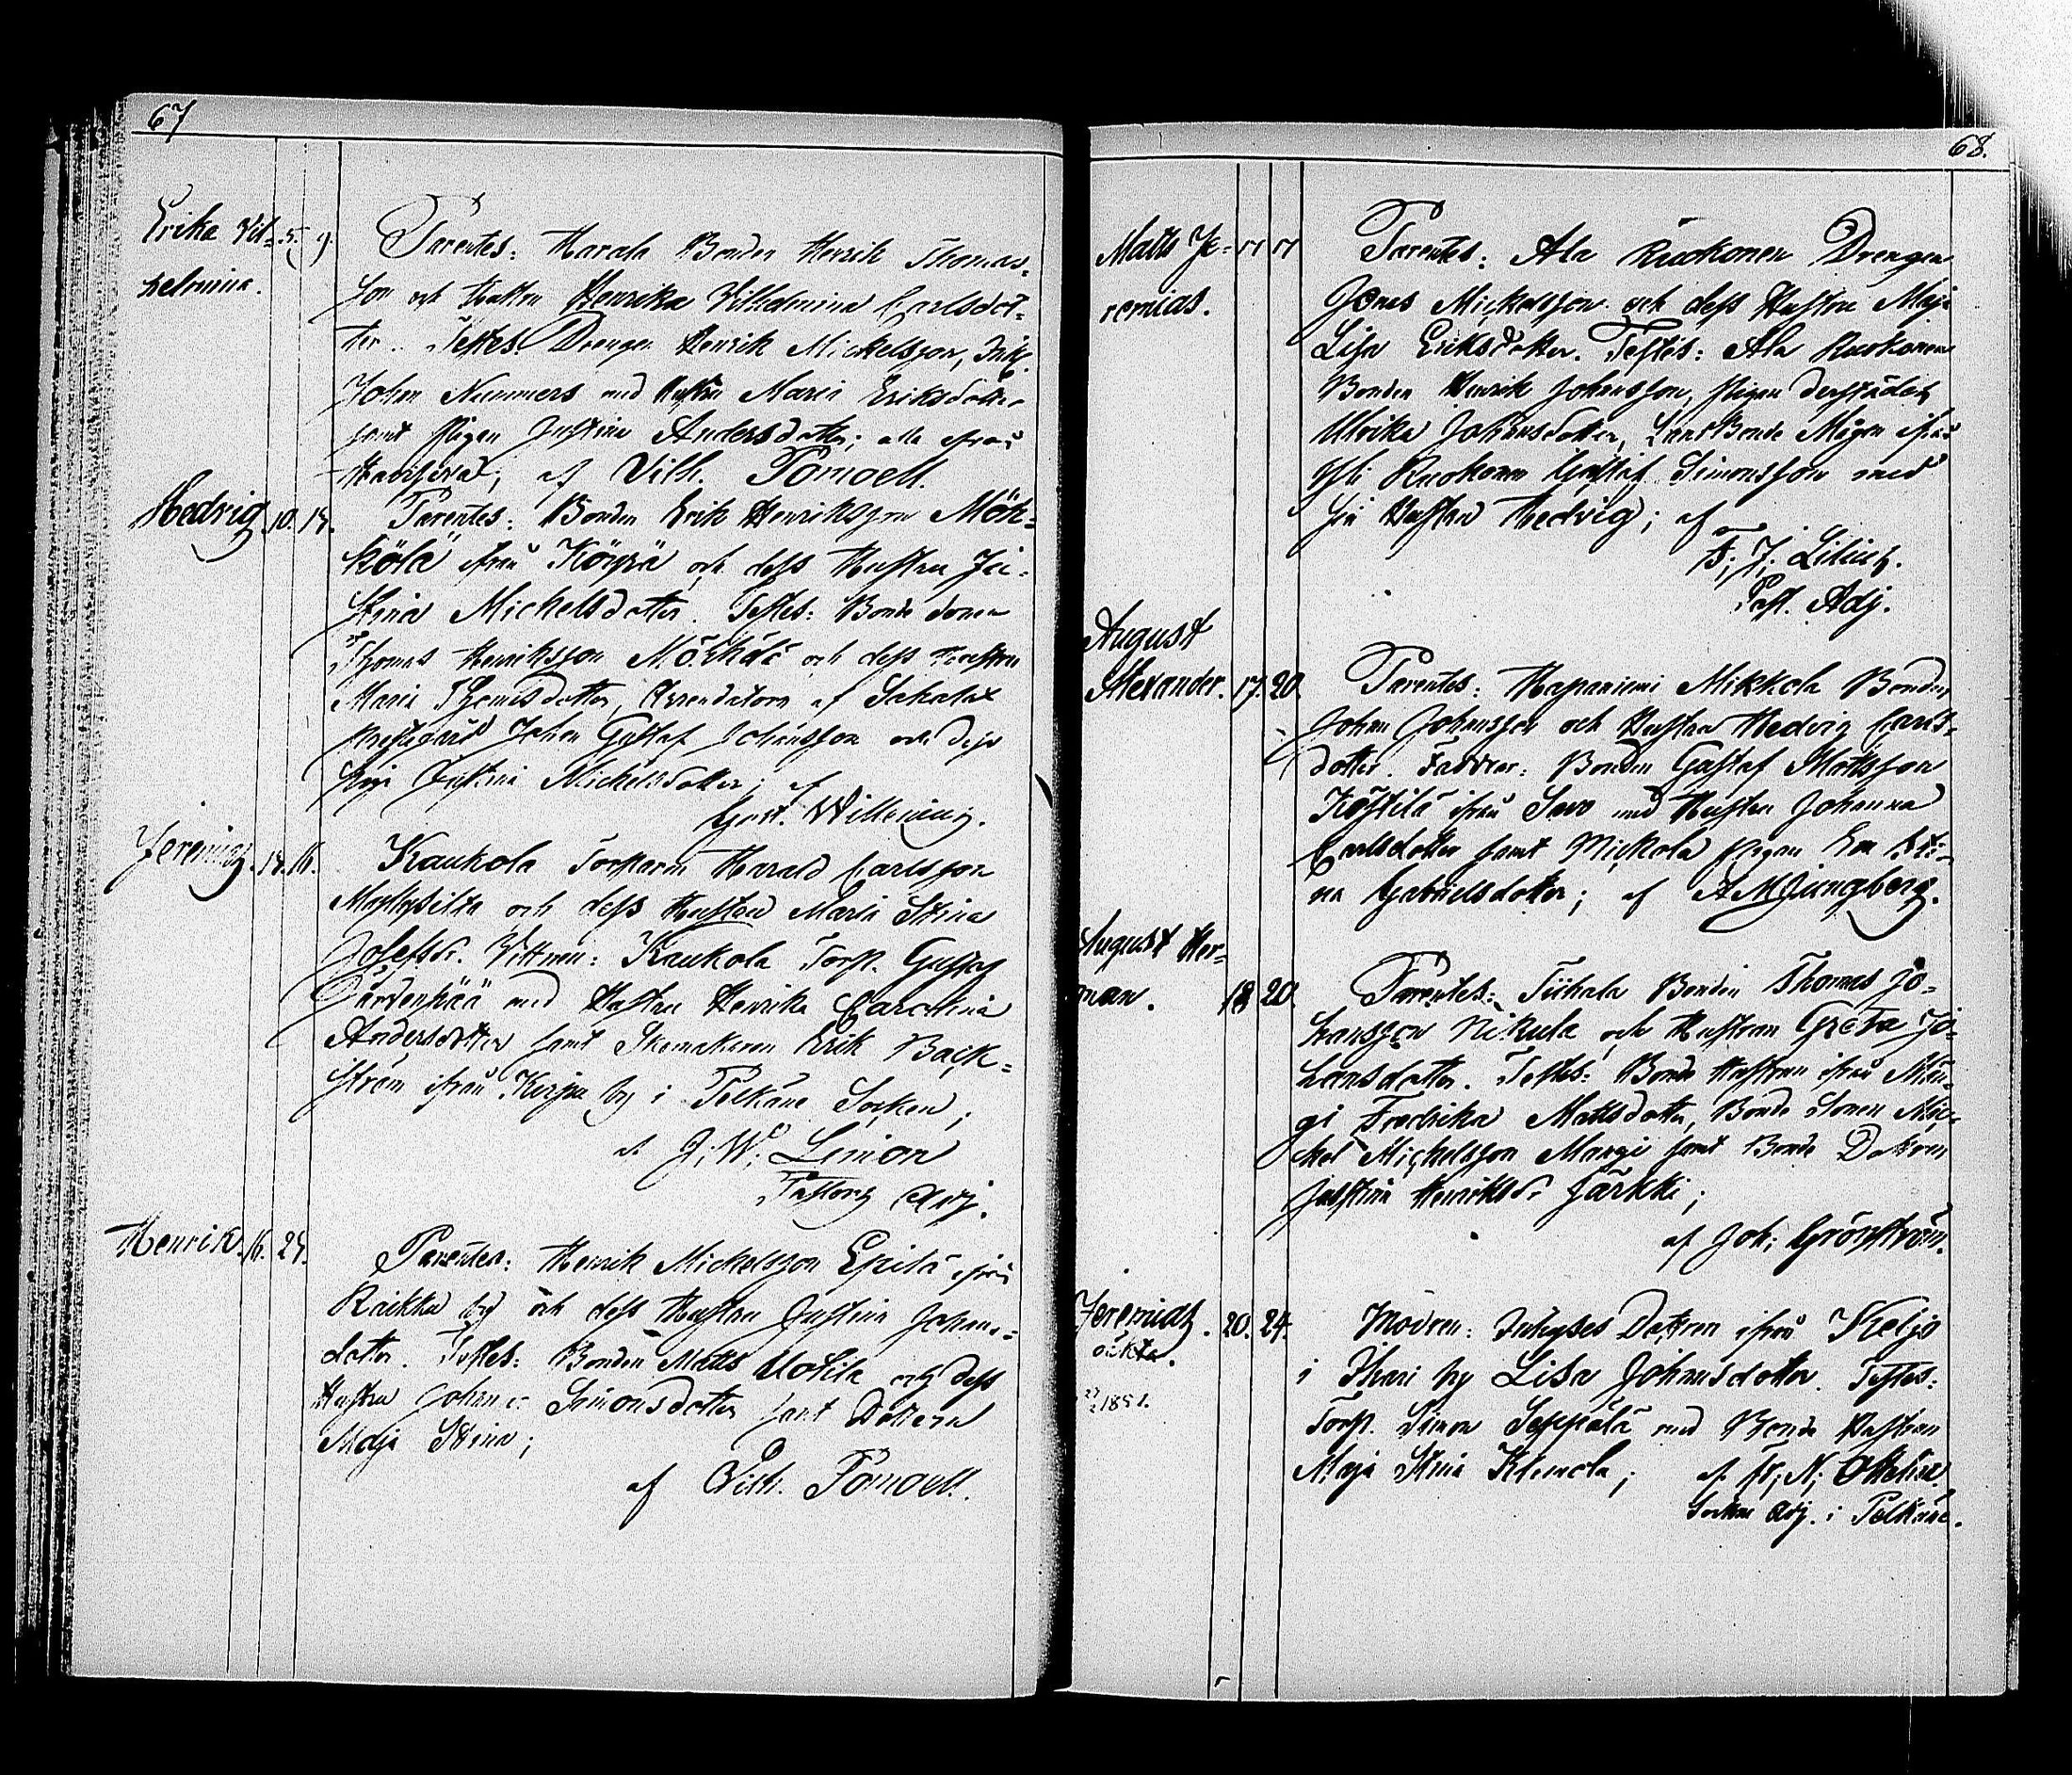 67
Erika Vil=
helmina.
5. 9.
Parentes: Harala Bonden Henrik Thomas=
son och Hustru Henrika Vilhelmina Carlsdot=
ter. Testes: Drengen Henrik Mickelsson, Inh.
Johan Nummers med Hustru Maria Eriksdotter
samt Pigan Justina Andersdotter; alla ifrån
af Vilh. Pomoell.
Hedvig 10. 14.
Parentes: Bonden Erik Henriksson Möh=
kölä ifrån Köyrä och dess Hustru Ju=
stina Mickelsdotter. Testes: Bonde Sonen
Thomas Henriksson Möhkölä och dess Hustru
Maria Thomsdotter, Arrendatorn af Sahalax
Prestgård Johan Gustaf Johansson och dess
Piga Justina Mickelsdotter; af
Gust. Willening.
Jeremias. 14. 16.
Kaukola Torparen Harald Carlsson
och dess Hustru Maria Stina
Josefsdr. Vittnen: Kaukola Torp. Gustaf
med Hustru Henrika Carolina
Andersdotter samt Skomakaren Erik Back=
ström ifrån Kirpu by i Pelkäne Socken;
af J. W. Limon
Pastors Adj.
Henrik. 16. 24.
Parentes: Henrik Mickelsson Epilä ifrån
Raikku by och dess Hustru Justina Johans=
dotter. Testes: Bonden Matts Uotila och dess
Hustru Johanna Simonsdotter samt Dottern
Maja Stina;
af Vilh. Pomoell.
68.
Matts Je=
remias.
17 17
Parentes: Ala Ruokonen Drengen
Jonas Mickelsson och dess Hustru Maja
Lisa Eriksdotter. Testes: Ala Ruokonen
Bonden Henrik Johansson, Pigan derstädes
Ulrika Johansdotter, Bonde Mågen ifrån
Yli Ruokonen Gustaf Simonsson med
sin Hustru Hedvig; af
F. J. Lilius.
Past. Adj.
August
Alexander. 17. 20.
Parentes: Haponiemi Mikkola Bonden
Johan Johansson och Hustru Hedvig Carls=
dotter. Faddrar: Bonden Gustaf Mattsson
Köystilä ifrån Savo med Hustru Johanna
Carlsdotter samt Mickola Pigan Eva Sti=
na Gabrielsdotter; af A M Ljungberg.
August Her=
man. 18 20
Parentes: Tiihala Bonden Thomas Jo=
hansson Nikula och Hustrun Greta Jo=
hansdotter. Testes: Bonde Hustrun ifrån Män=
gi Fredrika Mattsdotter, Bonde Sonen Mic=
kel Mickelsson Mangi samt Bonde Dottren
Justina Henriksdr Järkki;
af Joh. Grönström.
Jeremias. 20. 24.
oäkta.
1851.
Modren: Inhyses Dottren ifrån Keljo
i Ihari by Lisa Johansdotter. Testes:
Torp. Simon Seppälä med Bonde Hustrun
Maja Stina Klemola; af
Socken Adj. i Pelkäne.